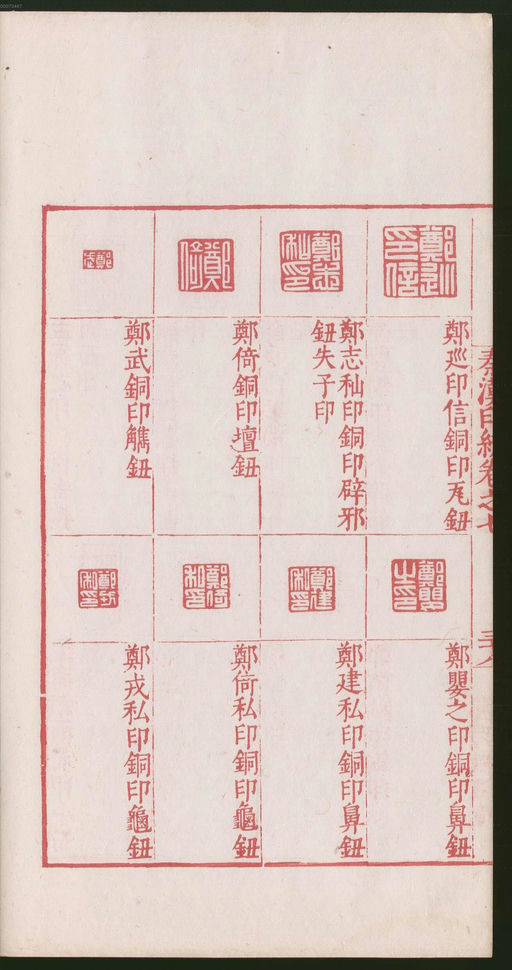 鄭廵印信銅印瓦鈕
鄭志私印銅印辟邪
鈕失子印
鄭倚銅印壇鈕
鄭武銅印觿鈕
鄭嬰之印銅印鼻鈕
鄭建私印銅印鼻鈕
鄭倚私印銅印龜鈕
鄭戎私印銅印龜鈕
秦漢印統卷之七
00073447